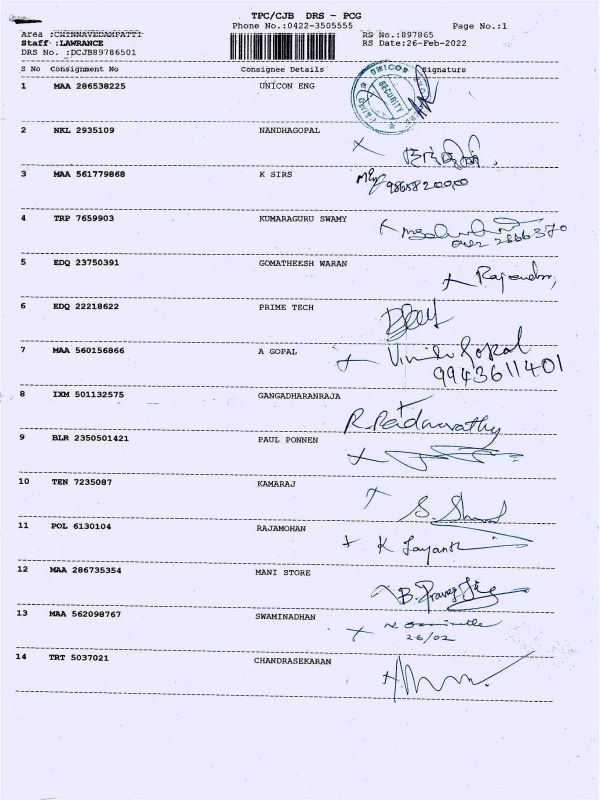 TPC/CJB DRS - PCG
Phone No.:0422-3505555 Page No.:1
Area :CHINNAVEDAMPATTI RS No.:897865
Staff :LAWRANCE RS Date:26-Feb-2022
DRS No. :DCJB89786501
S No Consignment No Consignee Details Signature
1 MAA 286538225 UNICON ENG
UNICON
SECURITY
2 NKL 2935109 NANDHAGOPAL
3 MAA 561779868 K SIRS
9865820000
4 TRP 7659903 KUMARAGURU SWAMY
0422 2666370
5 EDQ 23750391 GOMATHEESH WARAN
6 EDQ 22218622 PRIME TECH
7 MAA 560156866 A GOPAL
9943611401
8 IXM 501132575 GANGADHARANRAJA
R. Padmavathy
9 BLR 2350501421 PAUL PONNEN
10 TEN 7235087 KAMARAJ
11 POL 6130104 RAJAMOHAN
K Jayanth
12 MAA 286735354 MANI STORE
13 MAA 562098767 SWAMINADHAN
26/02
14 TRT 5037021 CHANDRASEKARAN